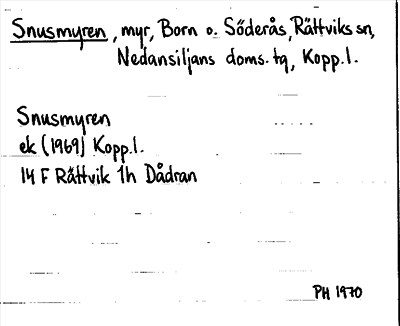 Snusmyren, myr, Born o. Söderås, Rättviks sn,
Nedansiljans doms. tg, Kopp.l.
Snusmyren
ek (1969) Kopp.l.
14 F Rättvik 1h Dådran
PH 1970